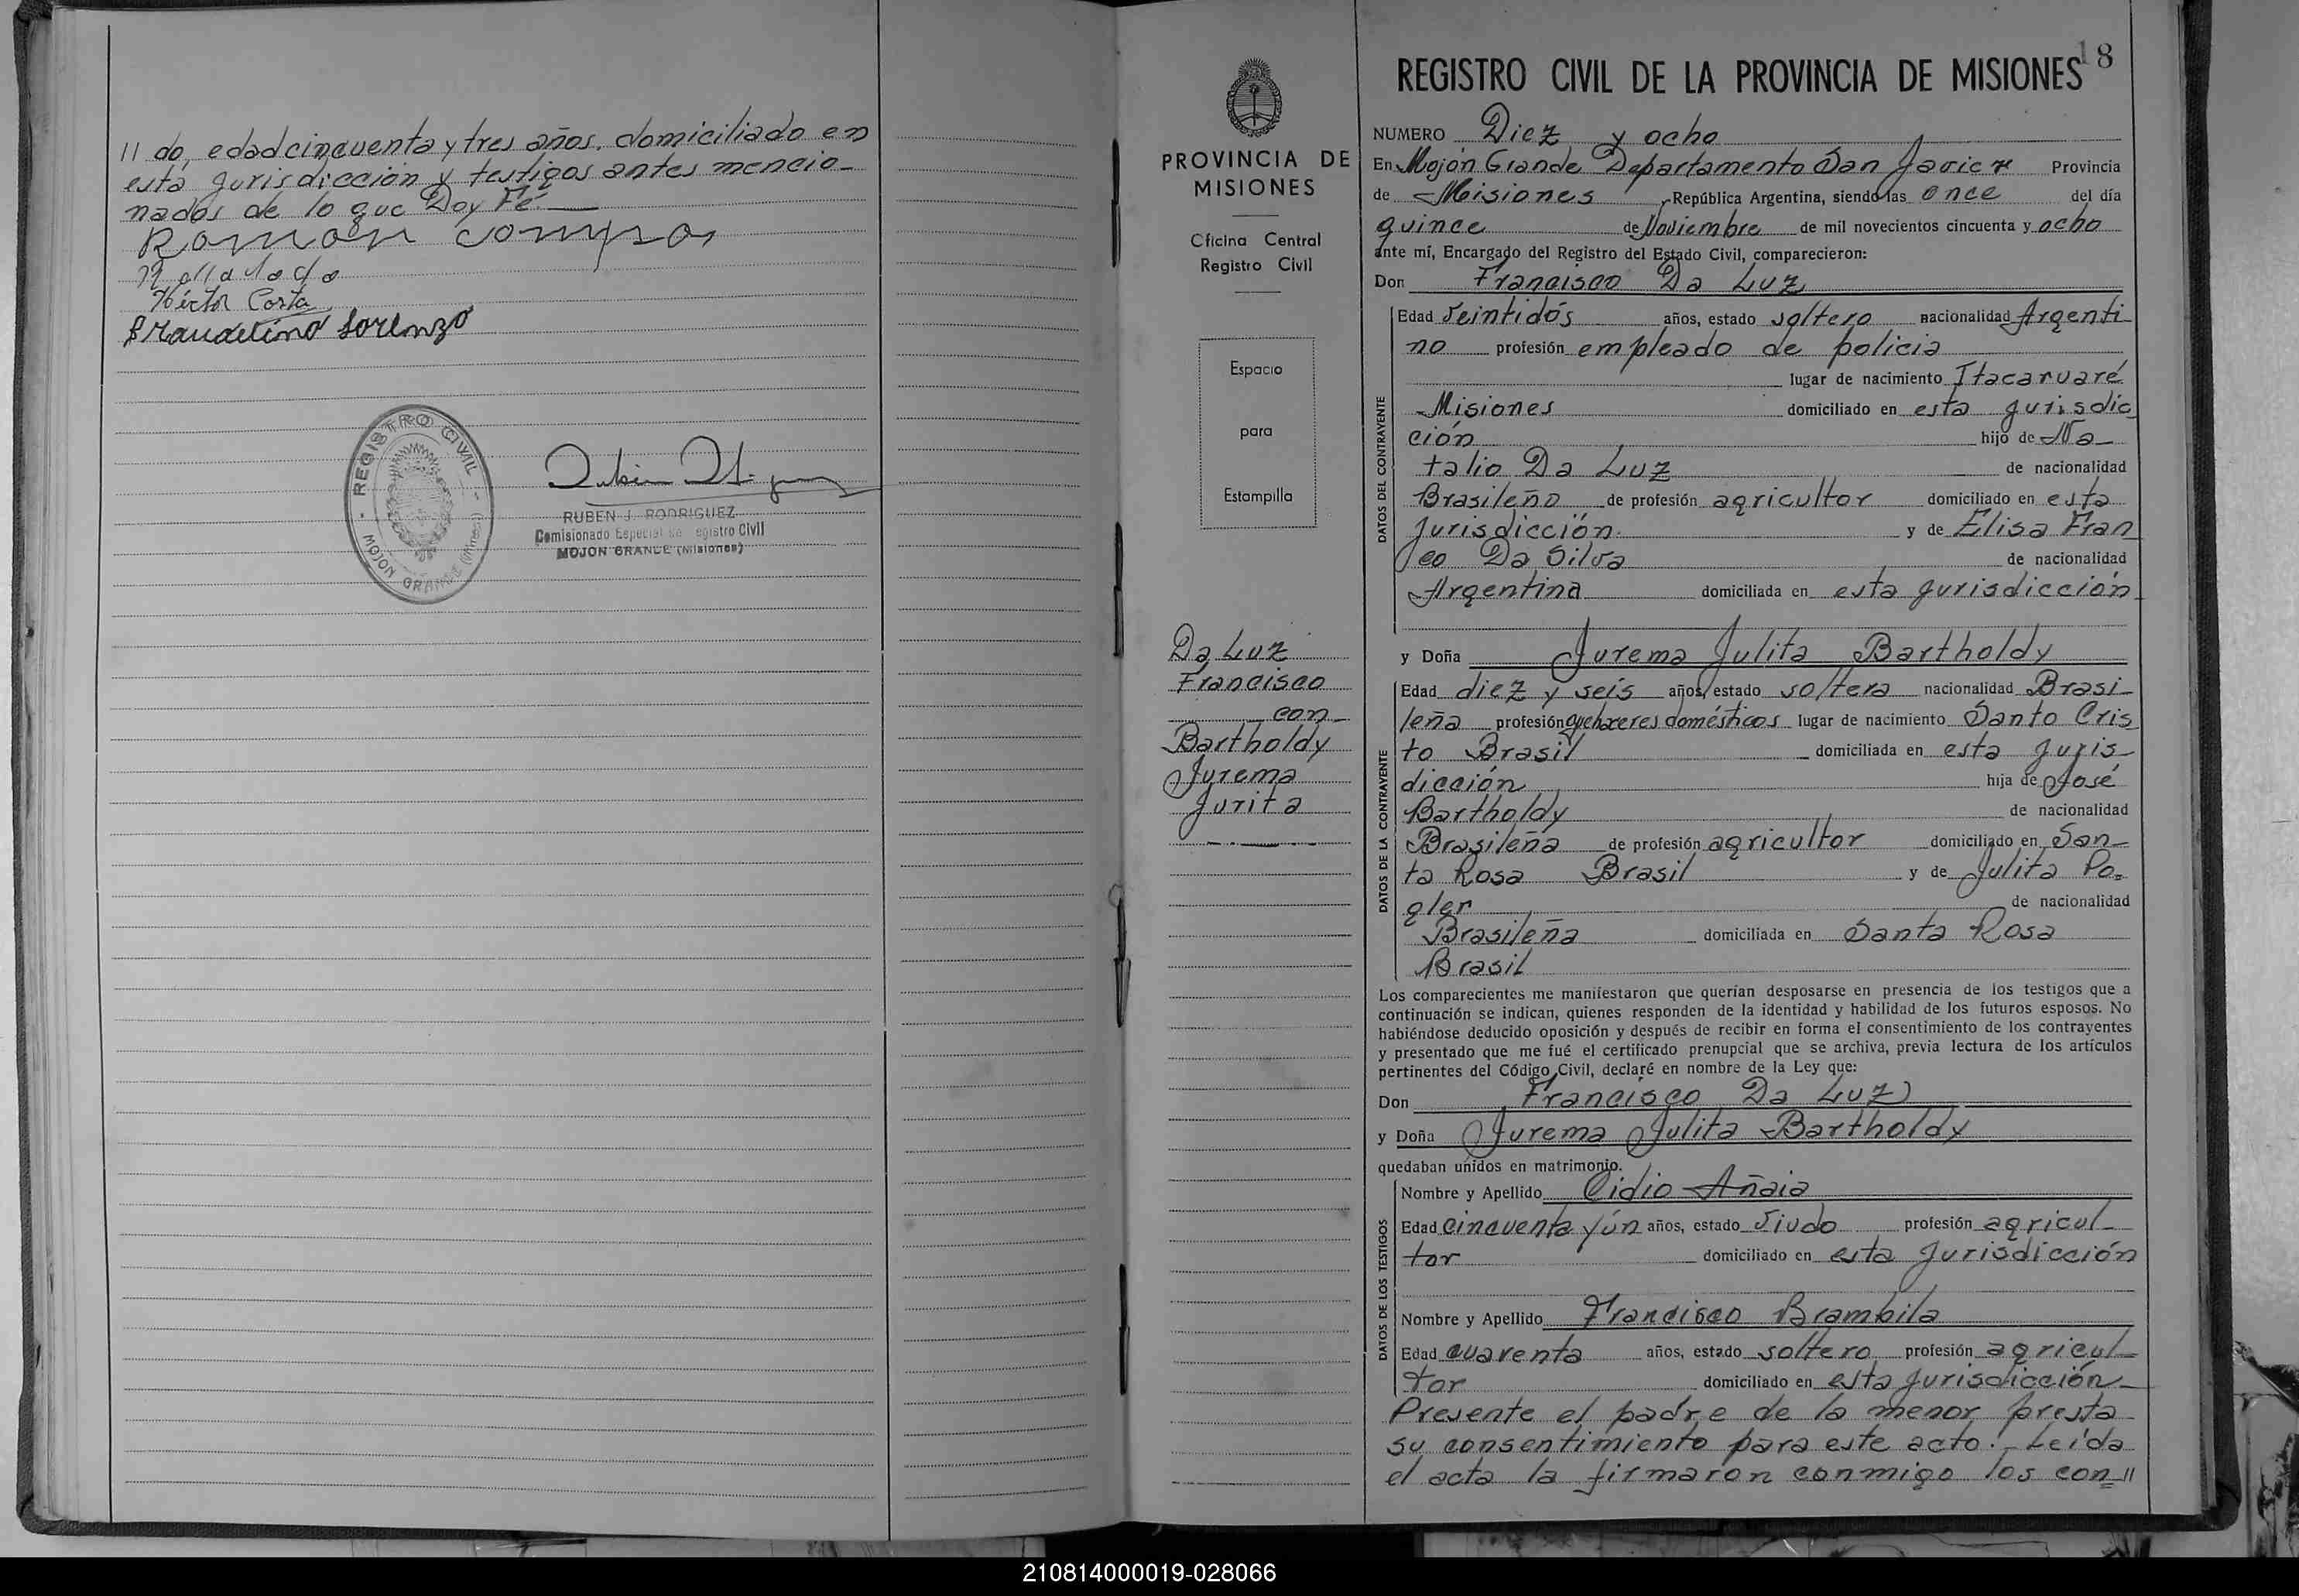 11 do, edad cincuenta y tres años, domiciliado en
esta jurisdicción y testigos antes mencio-
nados de lo que Doy Fé.
Ramón
Héctor Costa
Lorenzo
REGISTRO CIVIL
MOJON GRANDE (Mnes.)
RUBEN J. RODRIGUEZ
Comisionado Especial de Registro Civil
MOJON GRANDE (Misiones)
PROVINCIA DE
MISIONES
Oficina Central
Registro Civil
Espacio
para
Estampilla
Da Luz
Francisco
con
Bartholdy
Jurema
Jurita
18
REGISTRO CIVIL DE LA PROVINCIA DE MISIONES
NUMERO Diez y ocho
En Mojón Grande Departamento San Javier Provincia
de Misiones República Argentina, siendo las once del día
quince de Noviembre de mil novecientos cincuenta y ocho
ante mí, Encargado del Registro del Estado Civil, comparecieron:
Don Francisco Da Luz
DATOS DEL CONTRAYENTE
Edad Veintidós años, estado soltero nacionalidad Argenti
no profesión empleado de policia
lugar de nacimiento Itacaruaré
Misiones domiciliado en esta jurisdic
ción hijo de Na-
talio Da Luz de nacionalidad
Brasileño de profesión agricultor domiciliado en esta
jurisdicción. y de Elisa Fran
co Da Silva de nacionalidad
Argentina domiciliada en esta jurisdicción
y Doña Jurema Julita Bartholdy
DATOS DE LA CONTRAYENTE
Edad diez y seis años, estado soltera nacionalidad Brasi-
leña profesión quehaceres domésticos lugar de nacimiento Santo Cris
to Brasil domiciliada en esta juris-
dicción hija de José
Bartholdy de nacionalidad
Brasileña de profesión agricultor domiciliado en San-
ta Rosa Brasil y de Julita Po-
gler de nacionalidad
Brasileña domiciliada en Santa Rosa
Brasil
Los comparecientes me manifestaron que querían desposarse en presencia de los testigos que a
continuación se indican, quienes responden de la identidad y habilidad de los futuros esposos. No
habiéndose deducido oposición y después de recibir en forma el consentimiento de los contrayentes
y presentado que me fué el certificado prenupcial que se archiva, previa lectura de los artículos
pertinentes del Código Civil, declaré en nombre de la Ley que:
Don Francisco Da Luz
y Doña Jurema Julita Bartholdy
quedaban unidos en matrimonio.
DATOS DE LOS TESTIGOS
Nombre y Apellido Cidio Añaia
Edad cincuenta y ún años, estado Viudo profesión agricul-
tor domiciliado en esta jurisdicción
Nombre y Apellido Francisco Brambila
Edad cuarenta años, estado soltero profesión agricul-
tor domiciliado en esta jurisdicción
Presente el padre de la menor presta
su consentimiento para este acto. Leída
el acta la firmaron conmigo los con 11
210814000019-028066